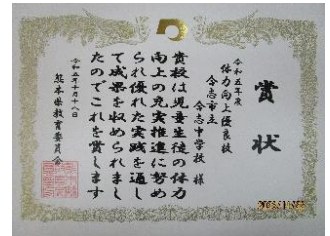 賞状
令和五年度
体力向上優良校
合志市立
合志中学校 様
貴校は児童生徒の体力
向上の充実推進に努め
られ優れた実践を通し
て成果を収められまし
たのでこれを賞します
令和五年十月十八日
熊本県教育委員会